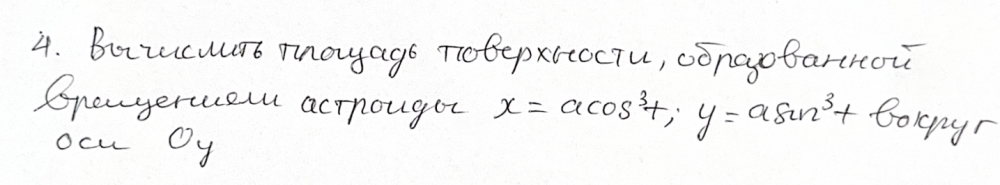 4. Вычислить площадь поверхности, образованной
вращением астроиды x = acos³t; y = asin³t вокруг
оси Oy